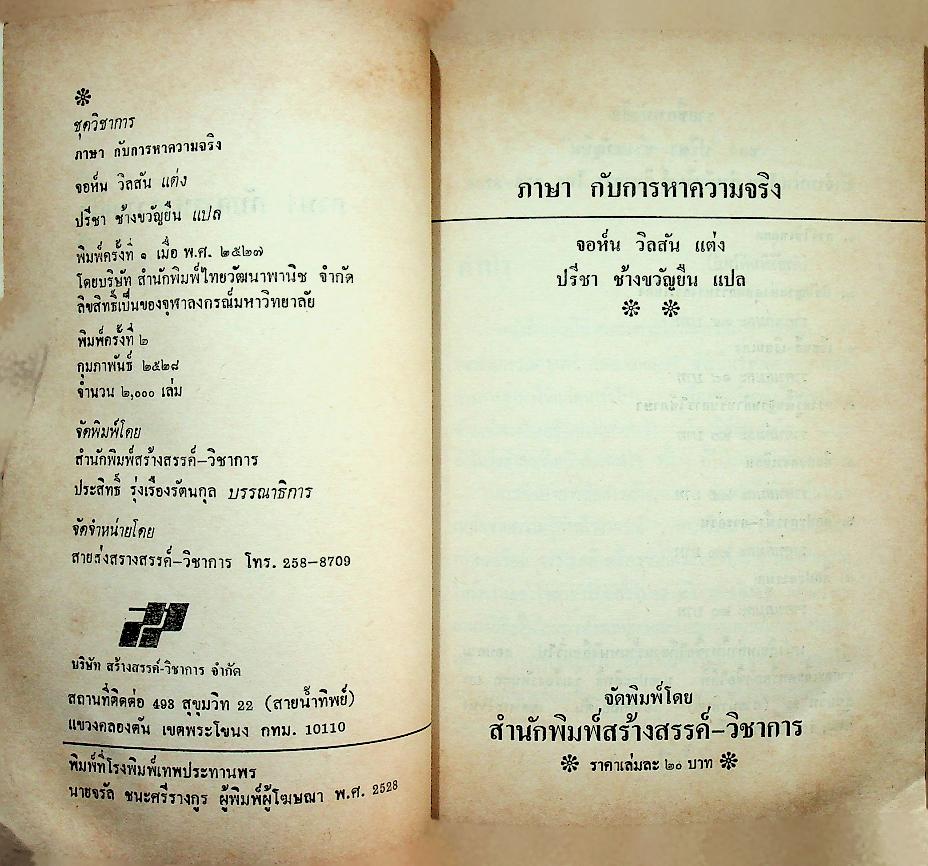 ชุดวิชาการ
ภาษา กับการหาความจริง
จอห์น วิลสัน แต่ง
ปรีชา ช้างขวัญยืน แปล
พิมพ์ครั้งที่ ๑ เมื่อ พ.ศ. ๒๕๒๗
โดยบริษัท สำนักพิมพ์ไทยวัฒนาพานิช จำกัด
ลิขสิทธิ์เป็นของจุฬาลงกรณ์มหาวิทยาลัย
พิมพ์ครั้งที่ ๒
กุมภาพันธ์ ๒๕๒๘
จำนวน ๒,๐๐๐ เล่ม
จัดพิมพ์โดย
สำนักพิมพ์สร้างสรรค์–วิชาการ
ประสิทธิ์ รุ่งเรืองรัตนกุล บรรณาธิการ
จัดจำหน่ายโดย
สายส่งสร้างสรรค์–วิชาการ โทร. 258–8709
บริษัท สร้างสรรค์-วิชาการ จำกัด
สถานที่ติดต่อ 493 สุขุมวิท 22 (สายน้ำทิพย์)
แขวงคลองตัน เขตพระโขนง กทม. 10110
พิมพ์ที่โรงพิมพ์เทพประทานพร
นายจรัล ชนะศรีรางกูร ผู้พิมพ์ผู้โฆษณา พ.ศ. 2528
ภาษา กับการหาความจริง
จอห์น วิลสัน แต่ง
ปรีชา ช้างขวัญยืน แปล
จัดพิมพ์โดย
สำนักพิมพ์สร้างสรรค์–วิชาการ
ราคาเล่มละ ๒๐ บาท